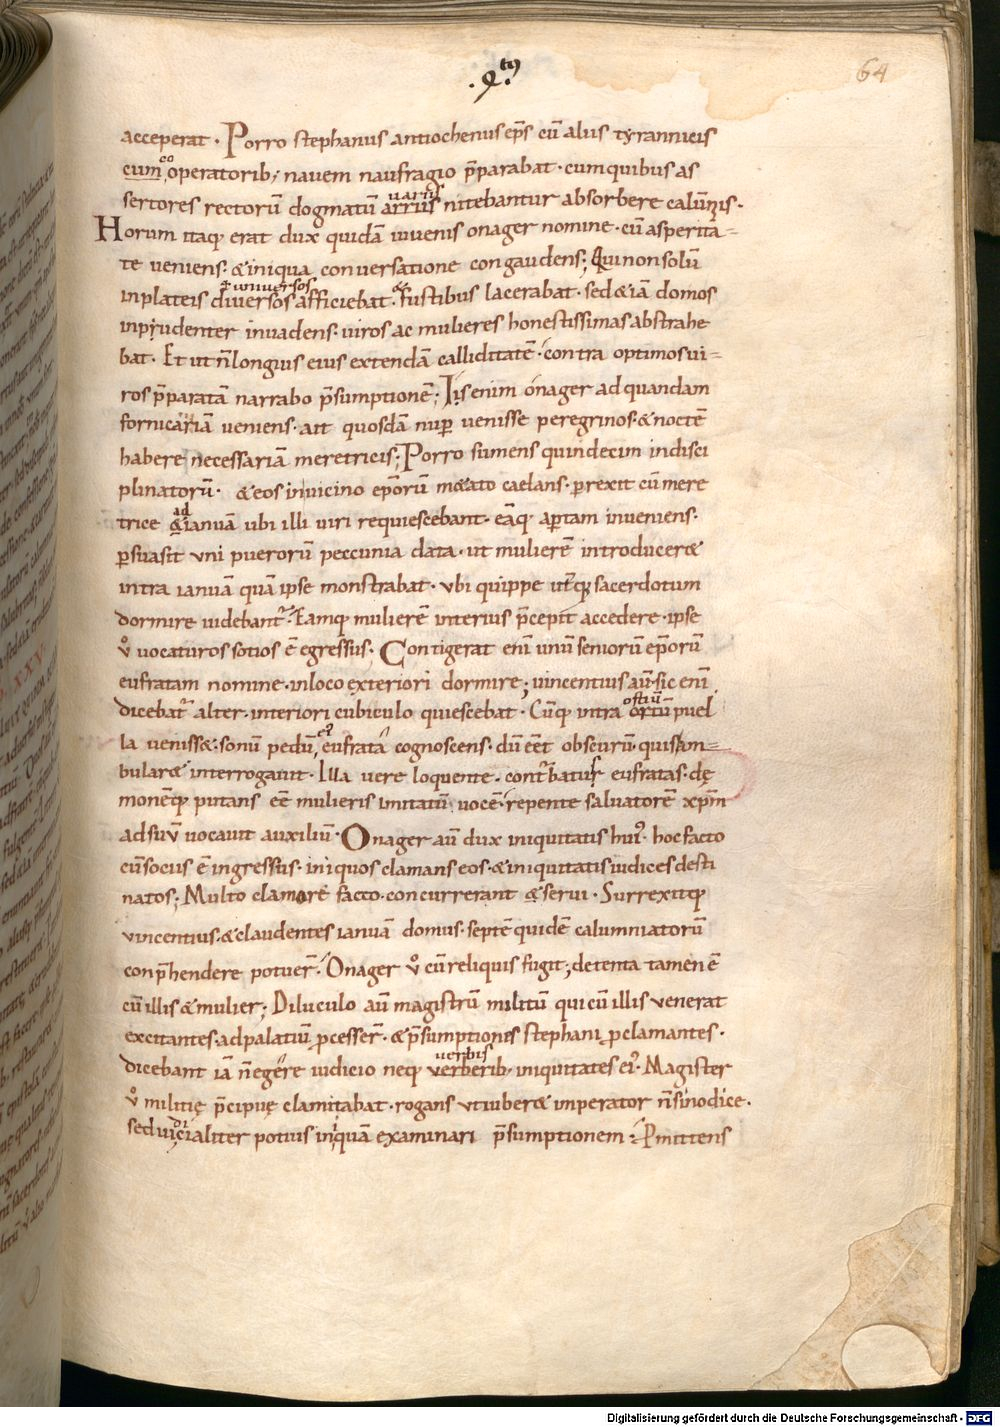 .Q.tꝰ
64
acceperat · Porro stephanus antiochenus ep̄s cū aliis tyrannicis
cum cooperatorib; navem naufragio p̄parabat · cum quibus as
sertores rectorū dogmatū arriis uariis nitebantur absorbere calūniis ·
Horum itaq; erat dux quidā iuvenis onager nomine · cū asperita-
te veniens · & iniqua conversatione congaudens; Qui non solū
inplateis diversos ł universos afficiebat · & fustibus lacerabat · sed & iā domos
inprudenter invadens · uiros ac mulieres honestissimas abstrahe
bat · Et ut n̄ longius eius extendā calliditatē · contra optimos ui-
ros p̄paratā narrabo p̄sumptionē; Is enim onager ad quandam
fornicariā veniens · ait quosdā nup̄ venisse peregrinos · & noctē
habere necessariā meretricis; Porro sumens quindecim indisci
plinatorū · & eos in vicino ep̄orū meato caelans · perrexit cū mere
trice & ad ianuā ubi illi viri requiescebant · eāq; apertam inveniens ·
p̄suasit uni puerorū peccunia data · ut mulierē introduceret
intra ianuā quā ipse monstrabat · Ubi quippe utq; sacerdotum
dormire uidebant² · Eamq; mulierē interius p̄cepit accedere · ipse
v̊ vocaturos sotios ē egressus · Contigerat eni unū seniorū ep̄orū
eufratam nomine · in loco exteriori dormire; vincentius aū · sic eni
dicebat² alter · interiori cubiculo quiescebat · Cūq; intra ortū ostiū puel
la venisset · sonū pedū ei² eufrata cognoscens · dū eēt obscurū · quis am-
bularet interrogavit · Illa vere loquente · cont²batus eufratas · dę
monēq; putans eē mulieris imitatū vocē · repente salvatorē xp̄m
ad suū vocavit auxiliū · Onager aū dux iniquitatis hui² · hoc facto
cū sociis ē ingressus · iniquos clamans eos · & iniquitatis iudices desti
natos; Multo clamore facto · concurrerant & servi · Surrexitq;
vincentius · & claudentes ianuā domus · septē quidē calumniatorū
conp̄hendere potuer̄ · Onager v̊ cū reliquis fugit; detenta tamen ē
cū illis & mulier; Diluculo aū magistrū militū qui cū illis venerat
excitantes · ad palatiū p̄cesser̄ · & p̄sumptionis stephani p̄clamantes ·
dicebant iā n̄ egere iudicio neq; verberib; uerbis iniquitates ei² · Magister
v̊ militię p̄cipuę clamitabat · rogans ut iuberet imperator n̄ sinodice ·
sed iudicialiter potius iniquam examinari p̄sumptionem; Pmittens
Digitalisierung gefördert durch die Deutsche Forschungsgemeinschaft - DFG